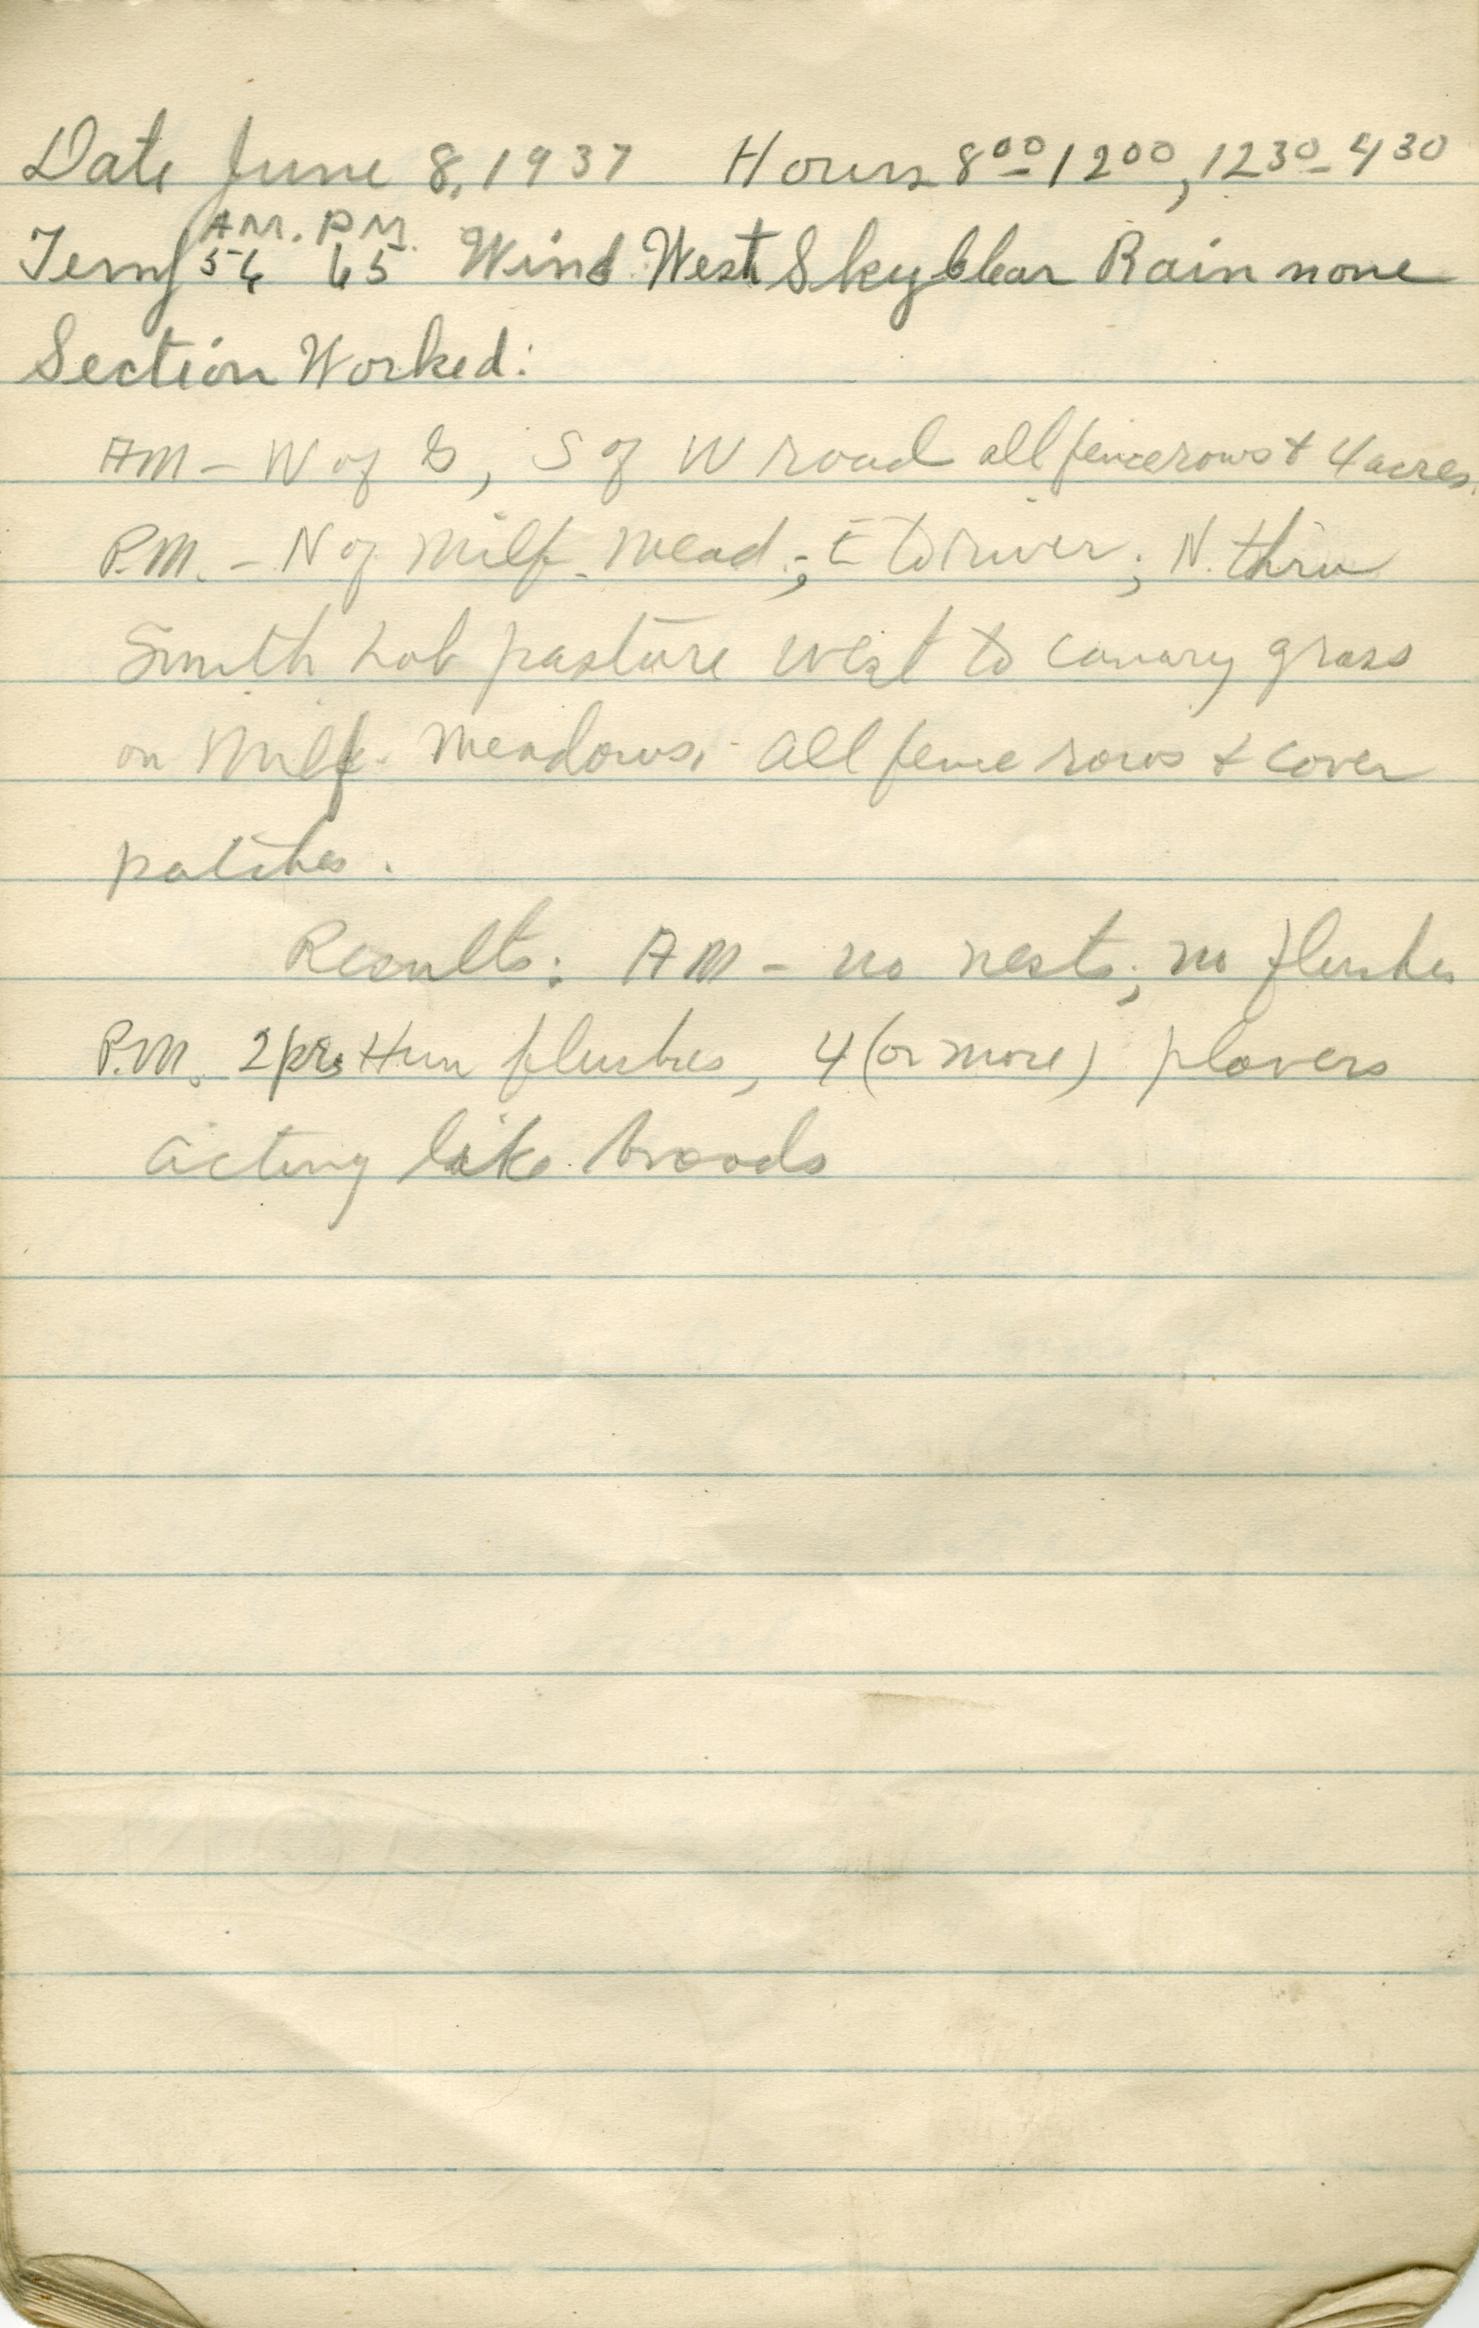 Date June 8, 1937 Hours 8⁰⁰-12⁰⁰, 12³⁰-4³⁰
A.M. P.M.
Temp 56 65 Wind West Sky Clear Rain none
Section Worked:
AM - W of B, S of W road all fencerows & 4 acres.
P.M. - N of Milf. Mead.; E to river; N. thru
Smith Lob pasture west to canary grass
on Milf. Meadows. - all fence rows & cover
patches.
Results: AM - no nests; no flushes
P.M. 2 prs Hun flushes, 4 (or more) plovers
acting like broods